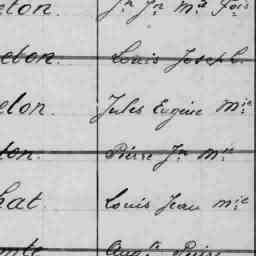 eton. Jn Jn Mie Fois
eton. Louis Joseph.
elon. Jules Eugène Mie
ton. Pierre Jn Mie
hat. Louis Jean Mie